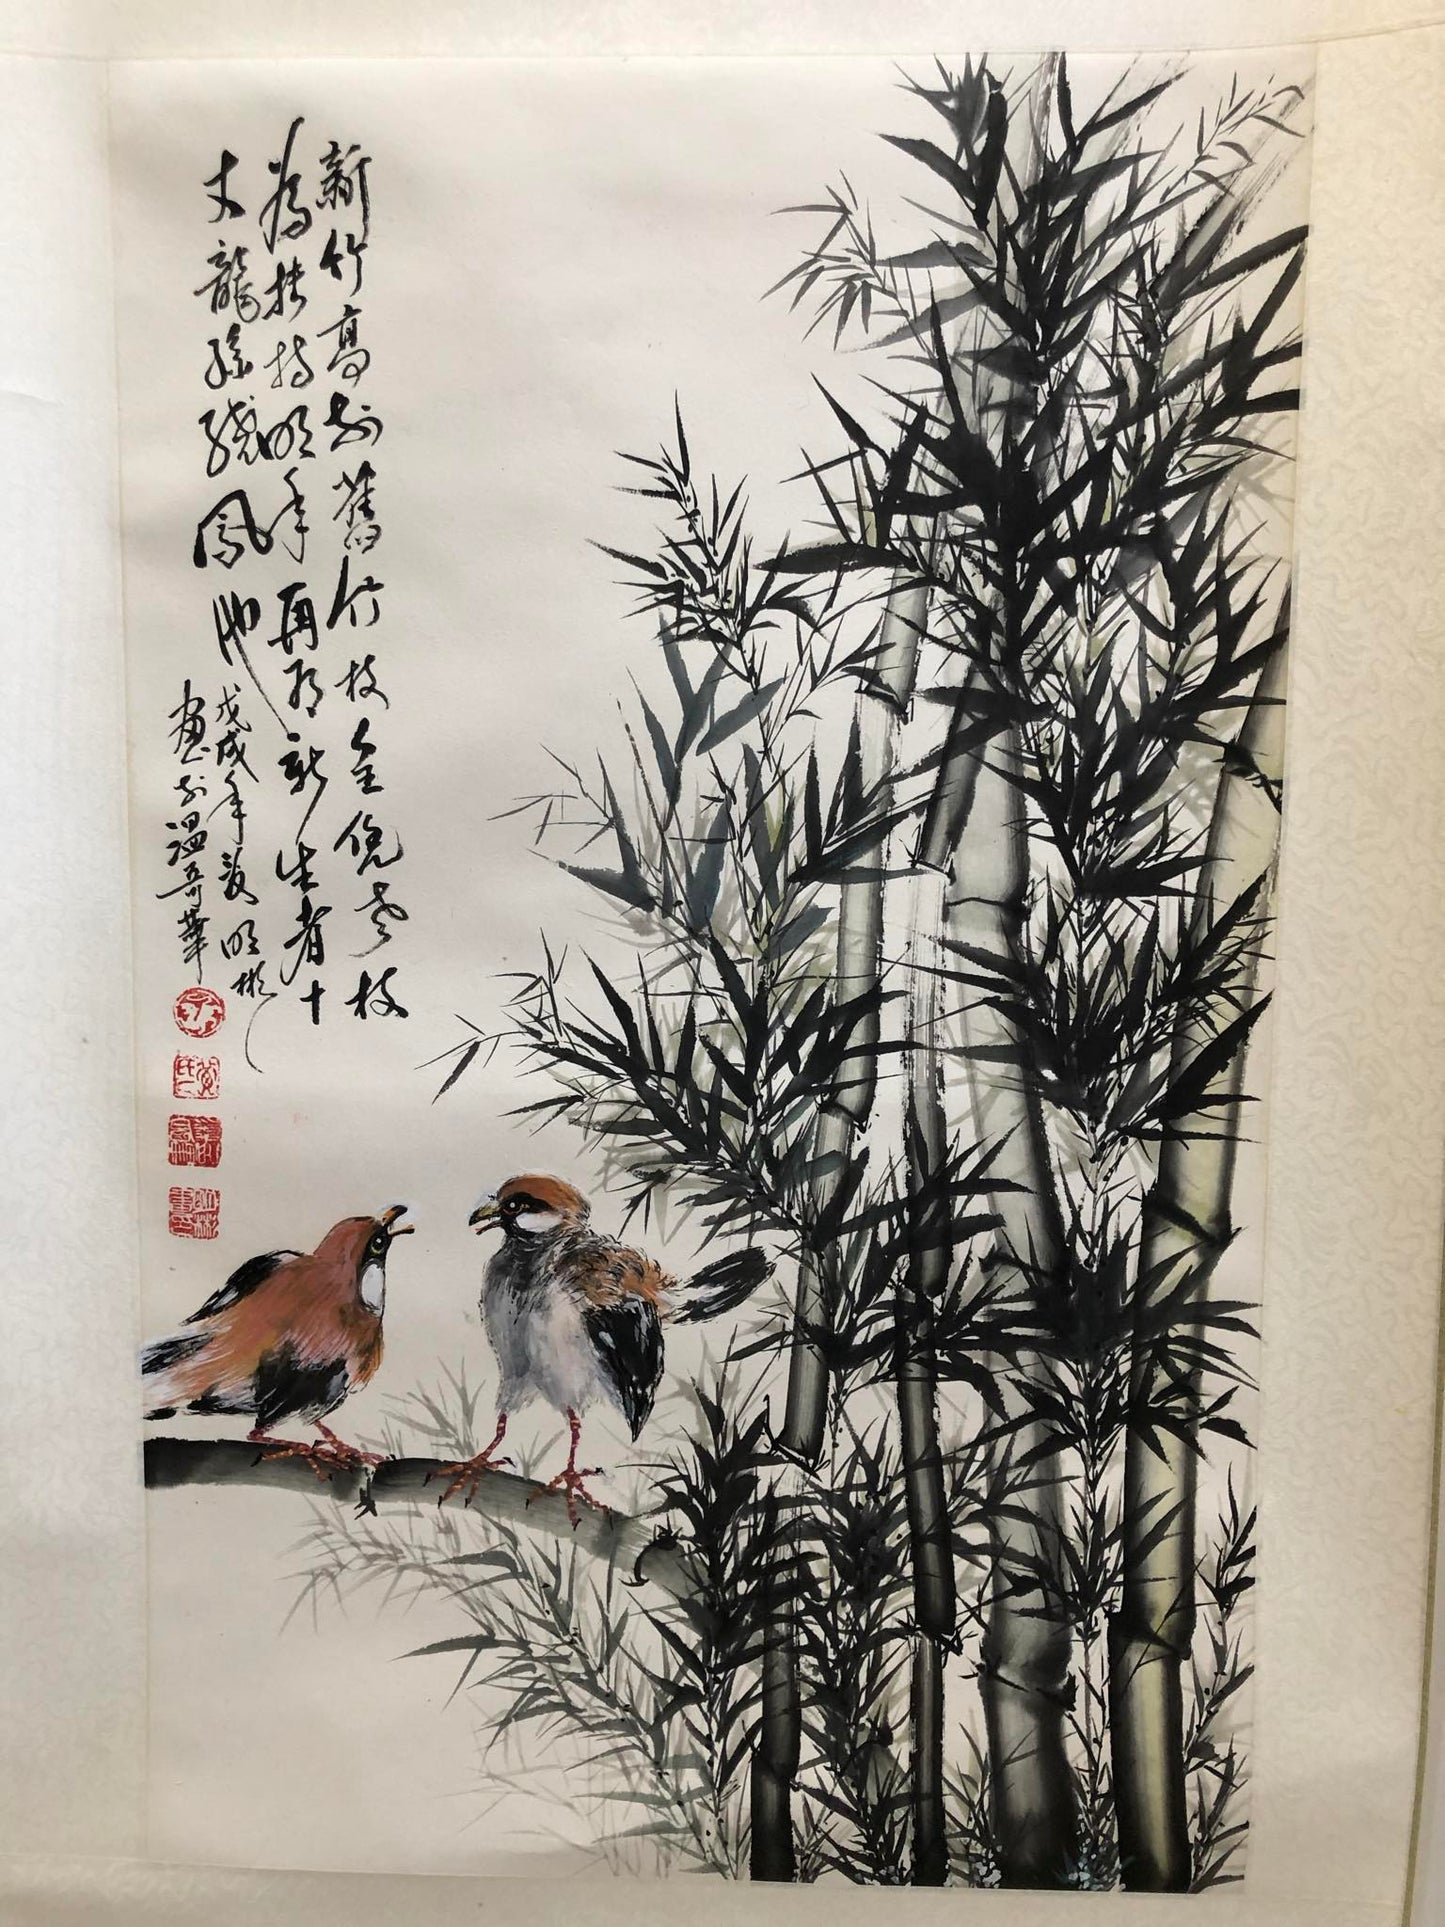 新竹高於舊竹枝全凭老枝
為扶持明年再有新生者十
丈龍孫繞鳳池
戊戌年
明彬
畫於溫哥華